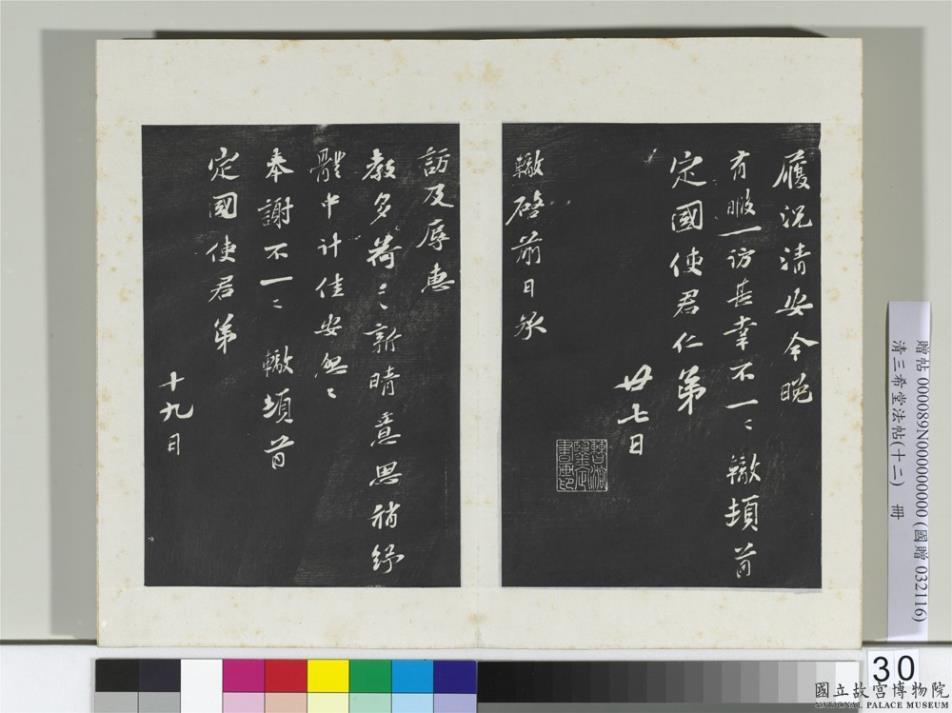 履況清安今晚
有暇一訪甚幸不一〻轍頓首
定國使君仁弟
廿七日
轍啓前日承
訪及辱惠
教多荷〻新晴意思稍舒
體中計佳安
奉謝不一〻轍頓首
定國使君弟
十九日
贈帖 000089N000000000 (國贈 032116)
清三希堂法帖(十二) 冊
30
國立故宮博物院
NATIONAL PALACE MUSEUM